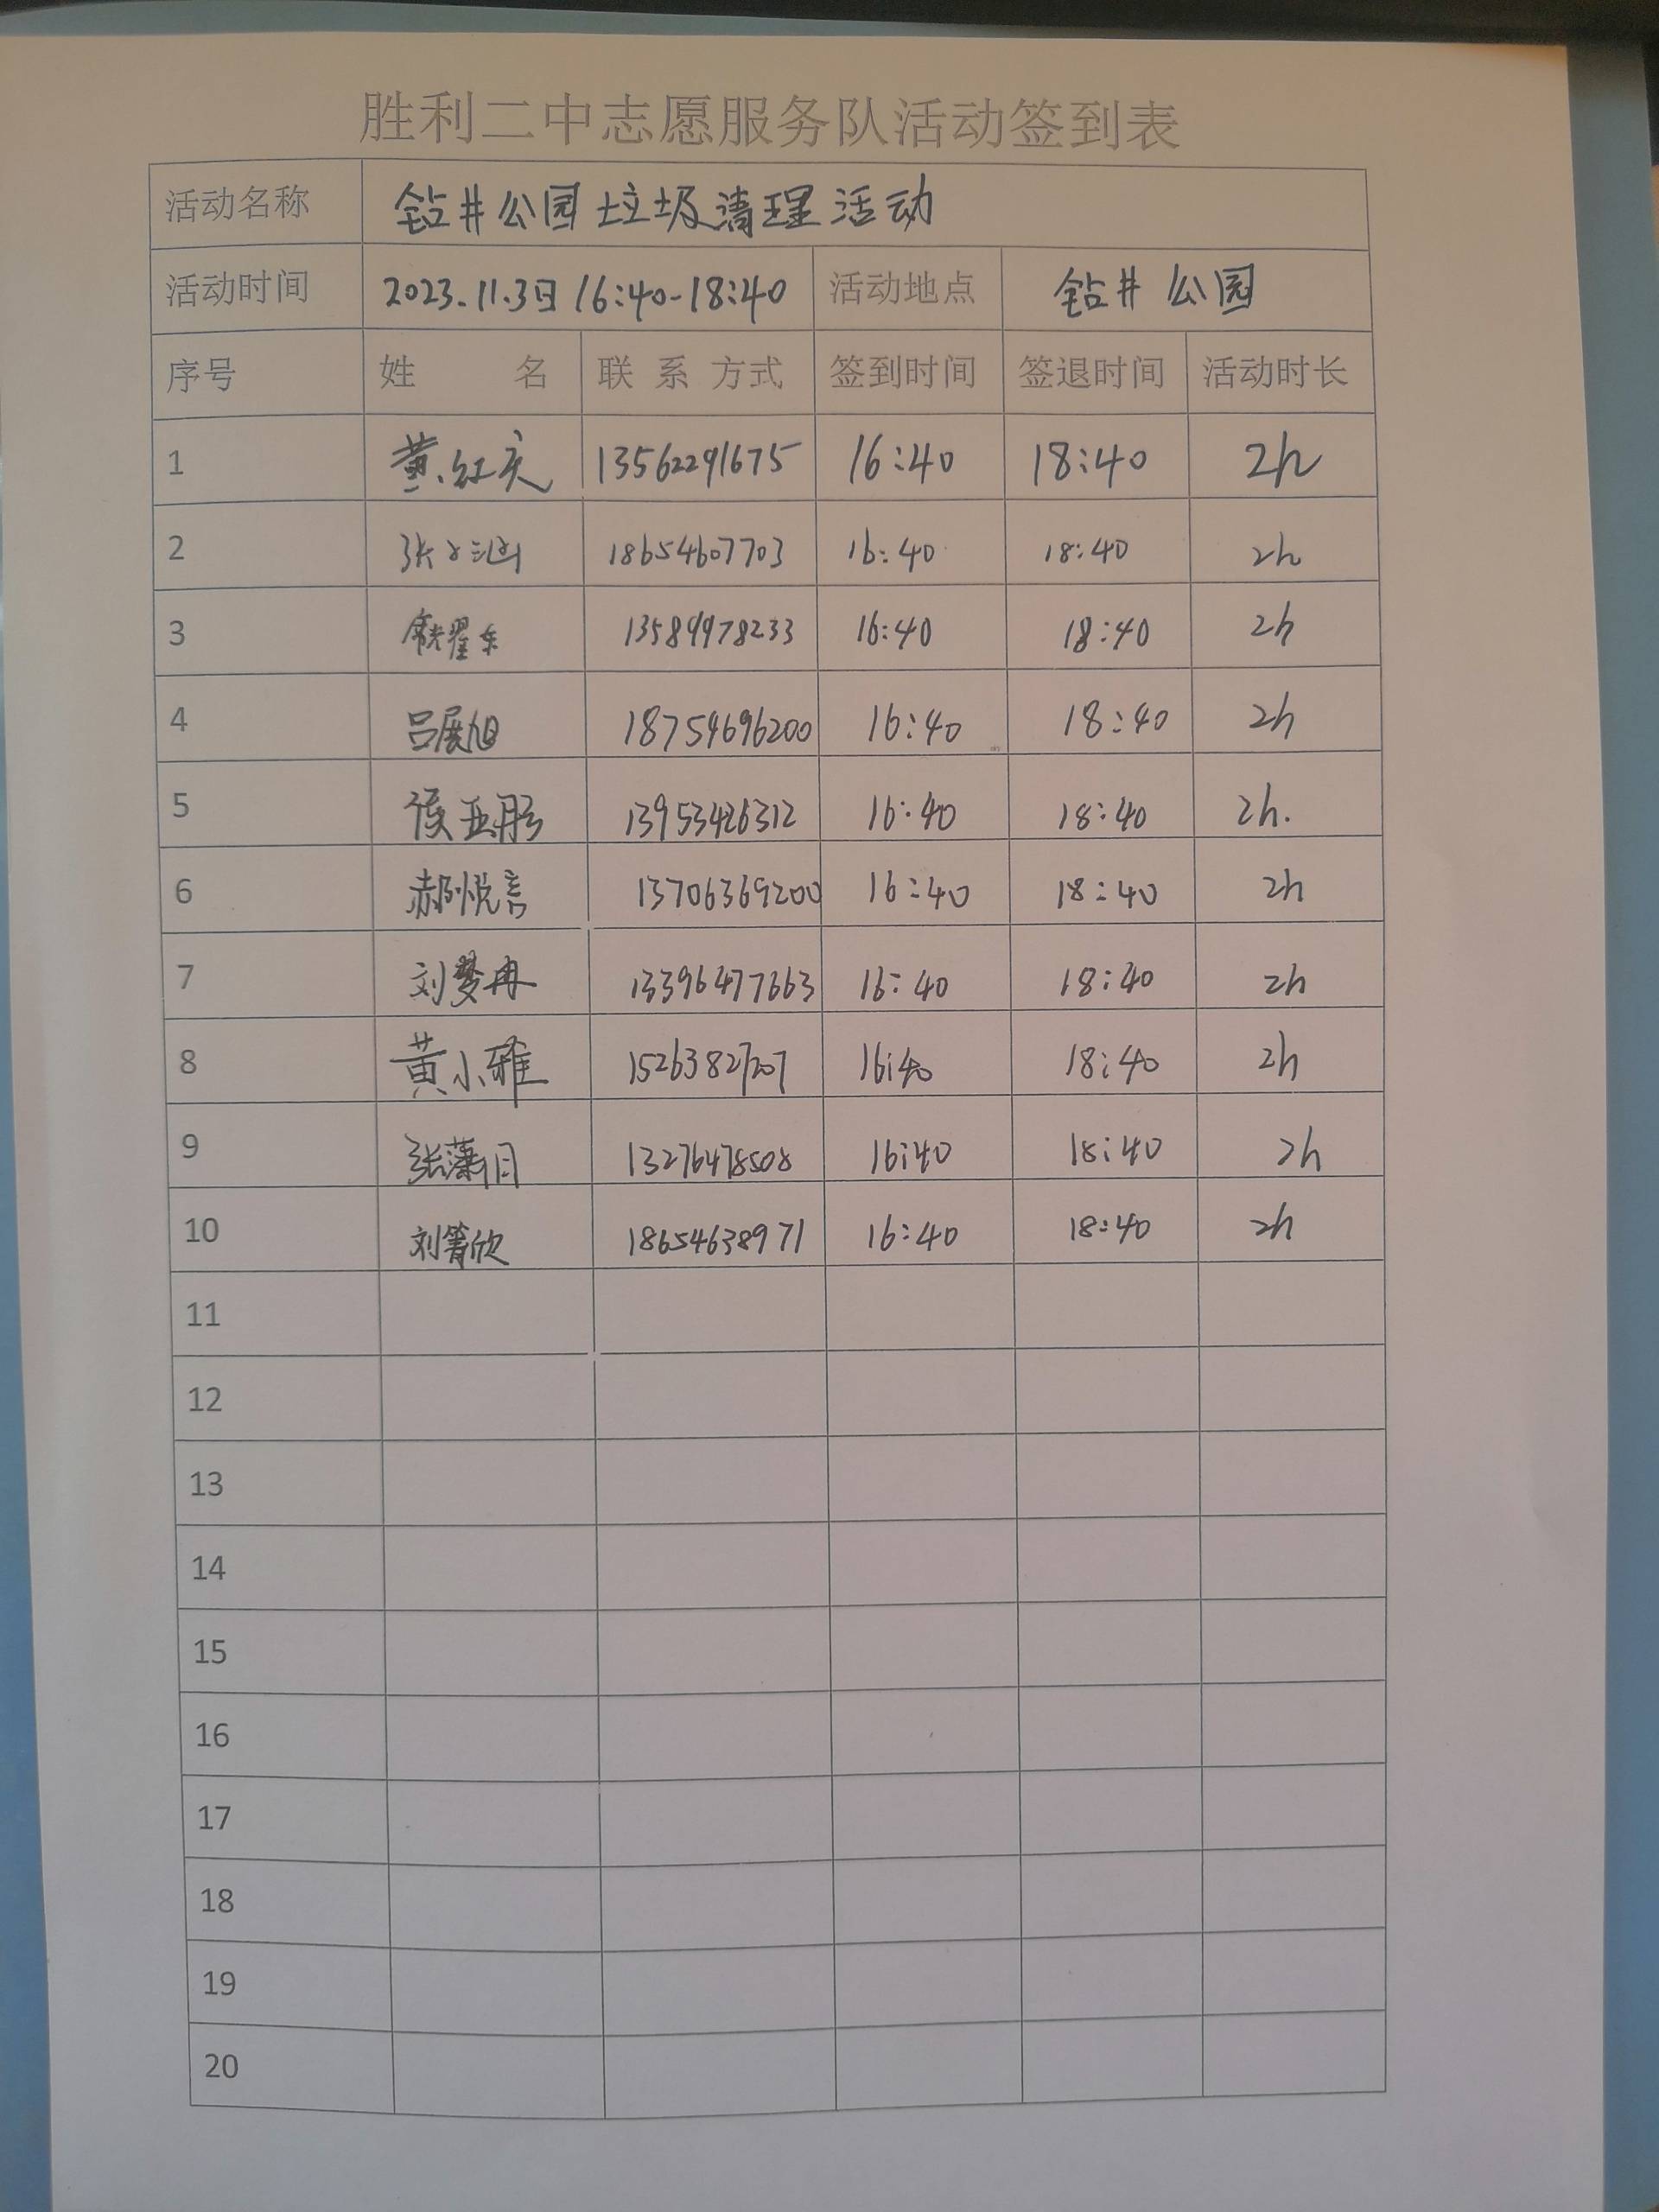 胜利二中志愿服务队活动签到表
活动名称 钻井公园垃圾清理活动
活动时间 2023.11.3日 16:40-18:40 活动地点 钻井公园
序号 姓 名 联 系 方式 签到时间 签退时间 活动时长
1 黄红 13562291675 16:40 18:40 2h
2 张 18654607703 16:40 18:40 2h
3 13589978233 16:40 18:40 2h
4 吕展旭 18754696200 16:40 18:40 2h
5 侯亚彤 13953426312 16:40 18:40 2h.
6 郝悦言 13706369200 16:40 18:40 2h
7 刘梦冉 13396477663 16:40 18:40 2h
8 黄小雅 15263827207 16:40 18:40 2h
9 张潇月 13276478508 16:40 18:40 2h
10 刘箐欣 18654638971 16:40 18:40 2h
11
12
13
14
15
16
17
18
19
20